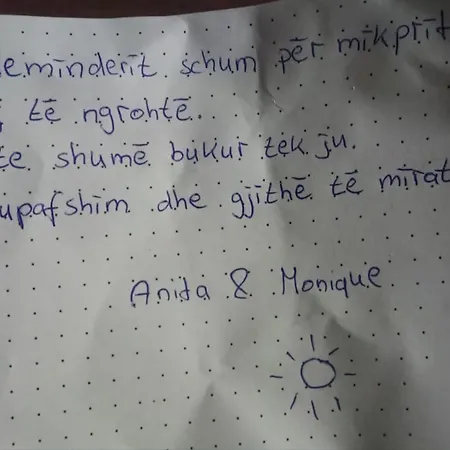 eminderit schum për mikprit
të ngrohtë.
te shumë bukur tek ju.
upafshim dhe gjithë të mirat
Anita & Monique